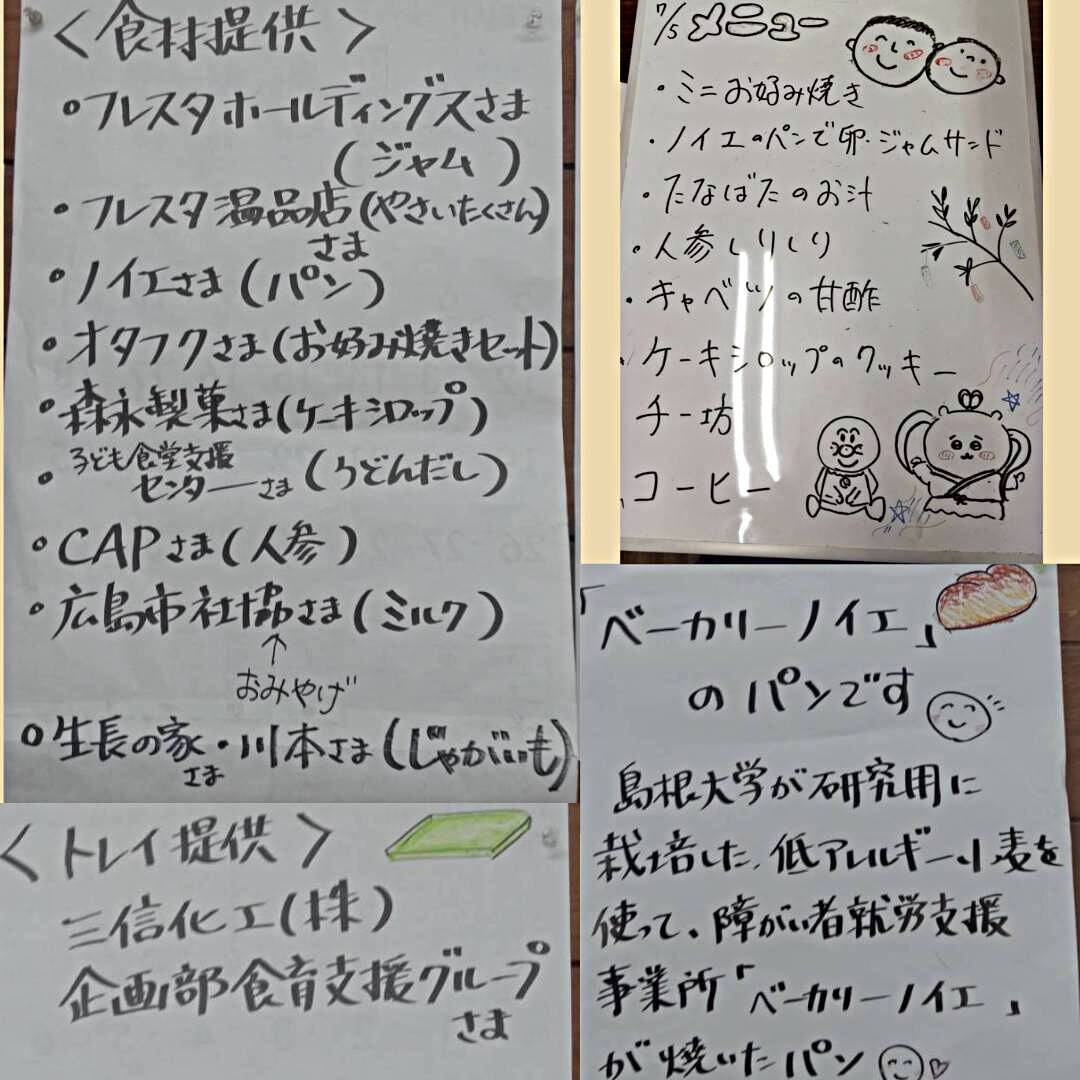 〈食材提供〉
○フレスタホールディングスさま
(ジャム)
・フレスタ温品店(やさいたくさん)
さま
・ノイエさま(パン)
・オタフクさま(お好み焼きセット)
・森永製菓さま(ケーキシロップ)
・子ども食堂支援
センターさま(うどんだし)
○CAPさま(人参)
○広島市社協さま(ミルク)
↑
おみやげ
○生長の家・川本さま(じゃがいも)
さま
7/5 メニュー
・ミニお好み焼き
・ノイエのパンで卵・ジャムサンド
・たなばたのお汁
・人参しりしり
・キャベツの甘酢
ケーキシロップのクッキー
チー坊
コーヒー
〈トレイ提供〉
三信化工(株)
企画部食育支援グループ
さま
「ベーカリーノイエ」
のパンです
島根大学が研究用に
栽培した、低アレルギー小麦を
使って、障がい者就労支援
事業所「ベーカリーノイエ」
が焼いたパン